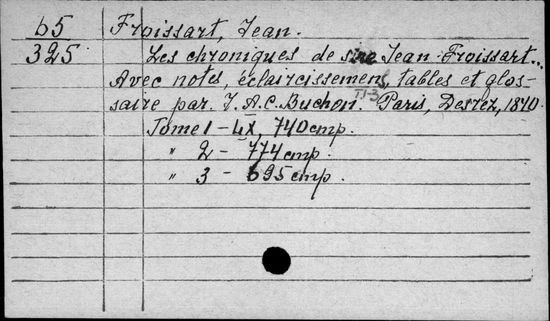 65 Froissart, Jean.
325 Les chroniques de sire Jean Froissart...
Avec notes, éclaircissemens, tables et glos-
saire par J. A. C. Buchon. T.1-3 Paris, Desrez, 1840.
Tome 1 - LX, 740 cmp.
" 2 - 774 cmp.
" 3 - 695 cmp.